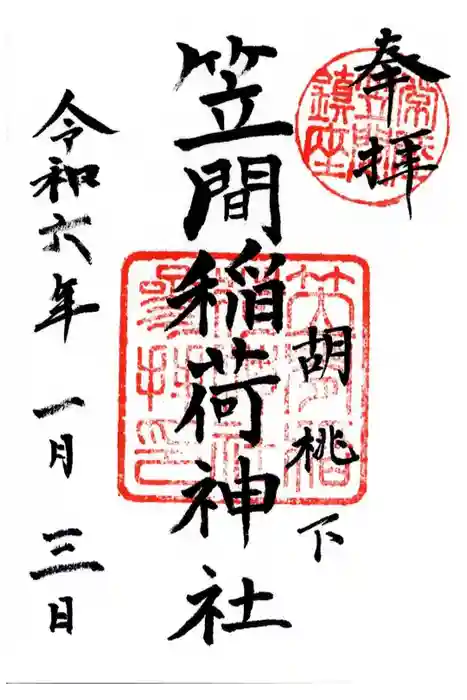 奉拝
常陸
笠間
鎮座
胡桃下
笠間稲荷神社
令和六年一月三日